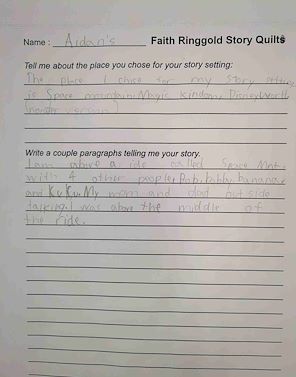 Name: Aidan's Faith Ringgold Story Quilts
Tell me about the place you chose for your story setting:
The place I chose for my story setting
is Space mountain Magic kingdom Disney World
Write a couple paragraphs telling me your story.
I am above a ride called Space Moun
with 4 other people, Bob, bobby, banana
and KuKu. My mom and dad outside
talking. I was above the middle of
the ride.